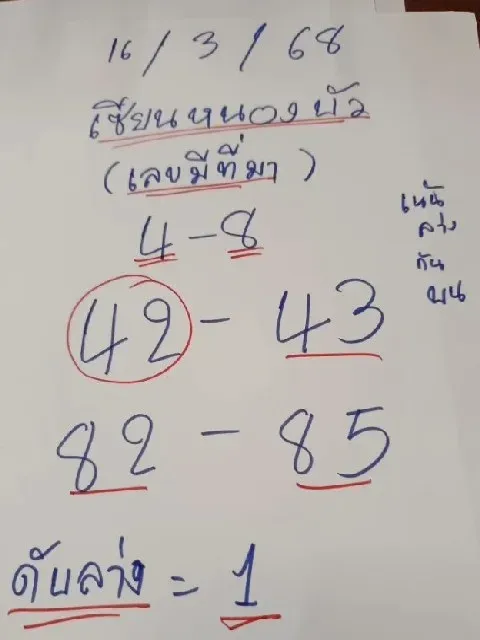 16/3/68
เซียนหนองบัว
(เลขมีที่มา)
4-8
42-43
82-85
เน้น
ล่าง
กัน
บน
ดับล่าง=1